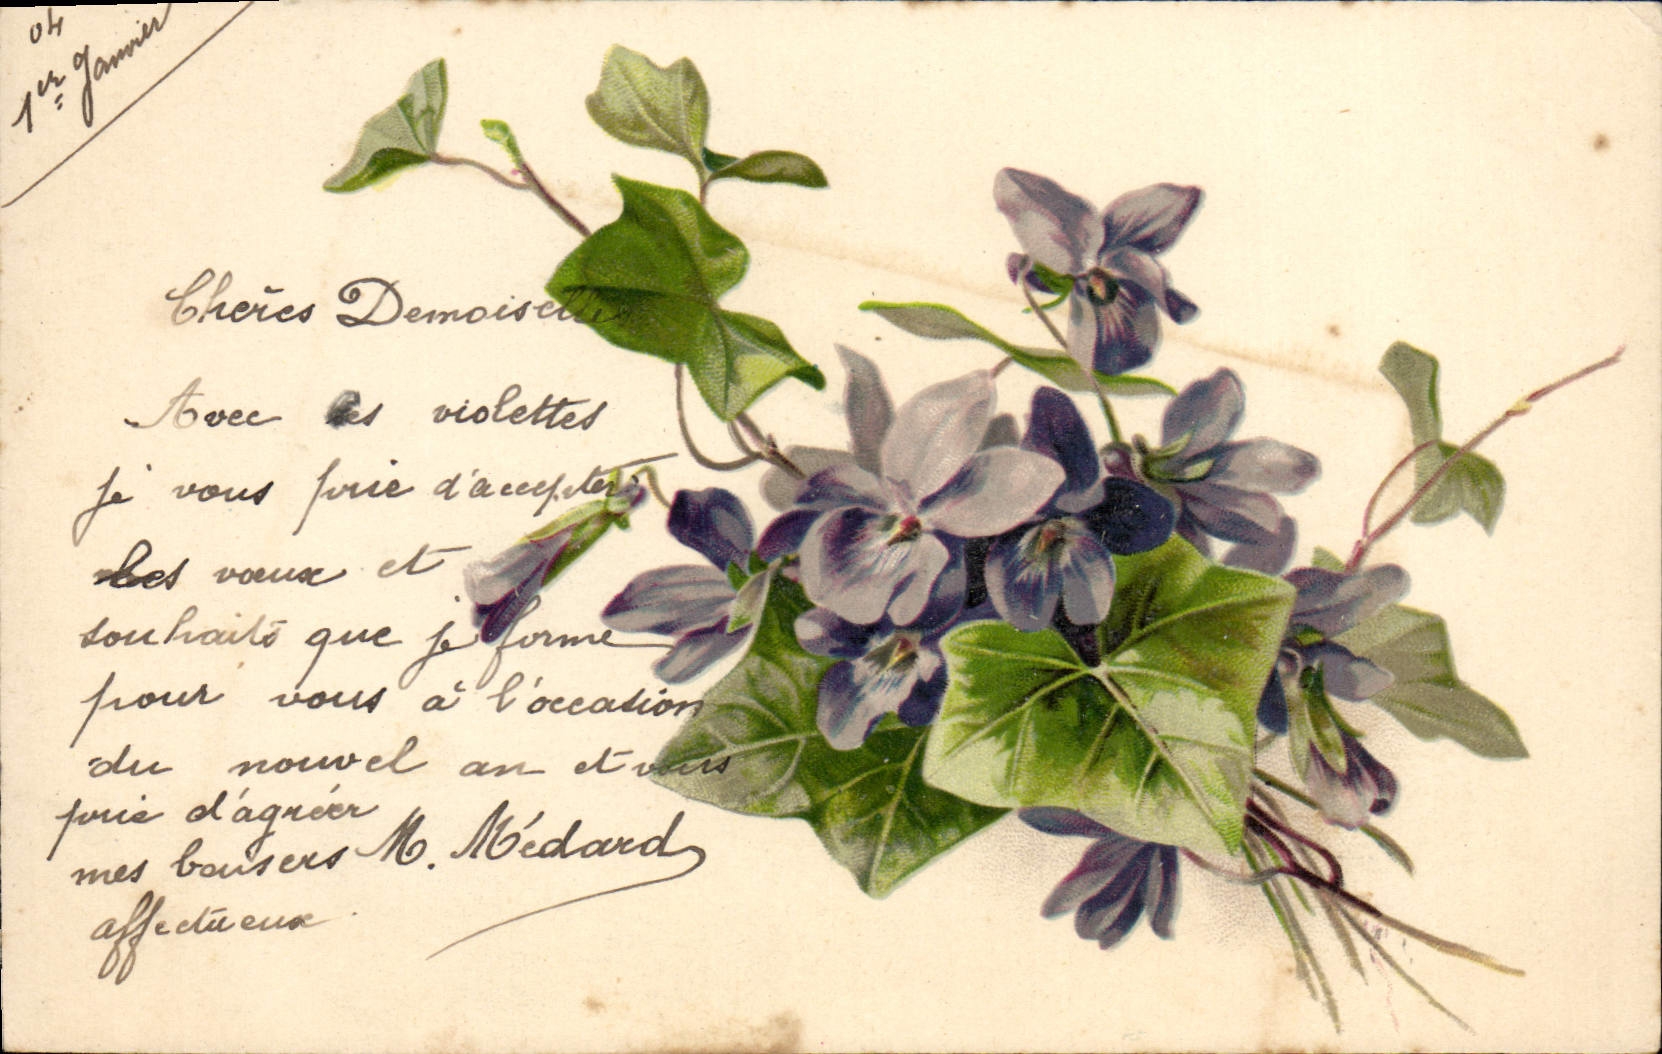 04
1er Janvier
Chères Demoiselles
Avec ces violettes
je vous prie d'accepter
les vœux et
souhaits que je forme
pour vous à l'occasion
du nouvel an et vous
prie d'agréer
mes baisers M. Médard
affectueux.